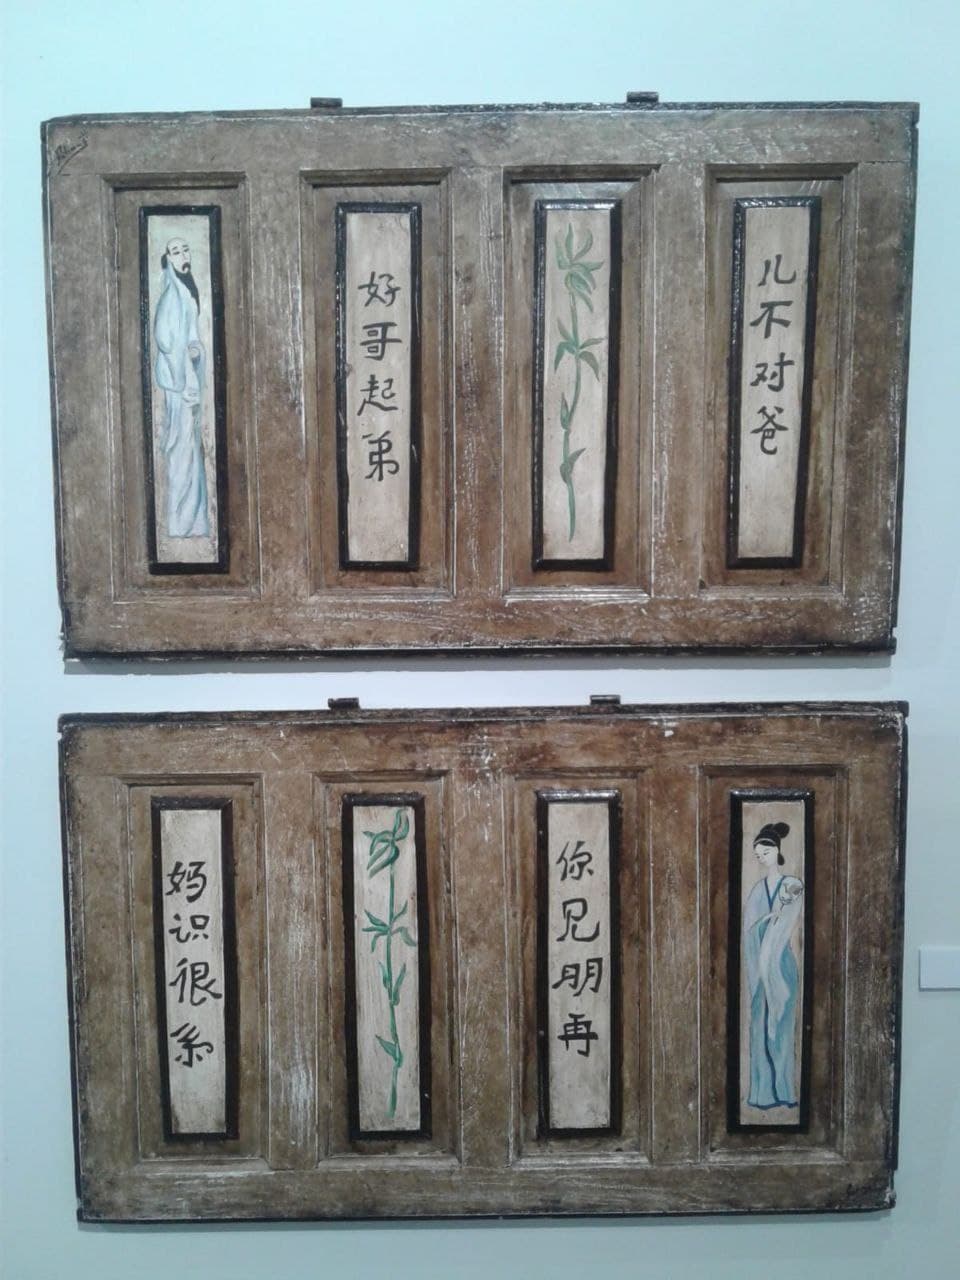 好哥起弟
儿不对爸
妈识很系
你见朋再